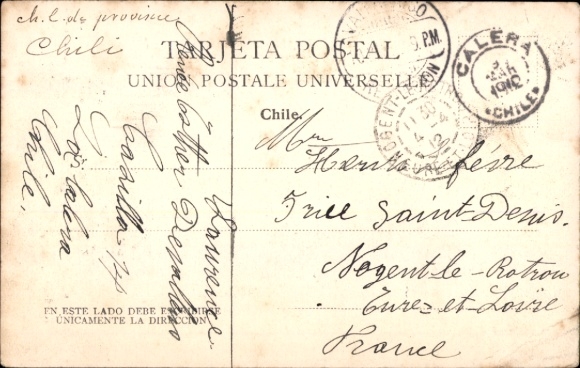 ch. l. de province
Chili
TARJETA POSTAL
UNION POSTALE UNIVERSELLE
Chile.
8. P.M.
CALERA
1912
*CHILE*
NOGENT-LE-ROTROU
EURE-ET-
Mme
Henri févre
5 rue Saint-Denis.
Nogent-le-Rotrou
Eure-et-Loire
France
Laurence
Casilla 74
La Calera
Chile.
EN ESTE LADO DEBE ESCRIBIRSE
ÚNICAMENTE LA DIRECCIÓN